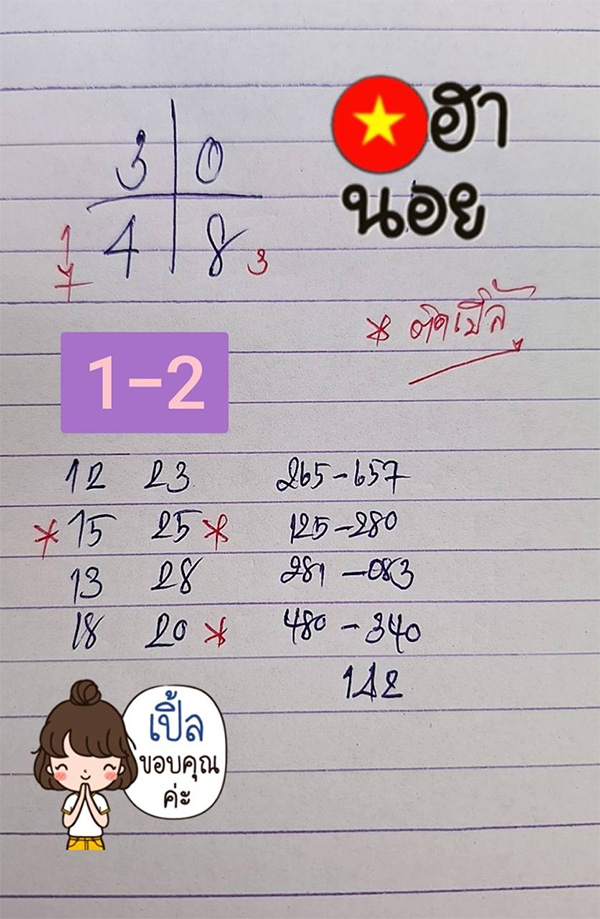 ฮา
นอย
3 0
4 8
1
7
3
* ติดเปิ้ล
1-2
12 23 265-657
*15 25* 125-280
13 28 281-083
18 20* 480-340
142
เปิ้ล
ขอบคุณ
ค่ะ